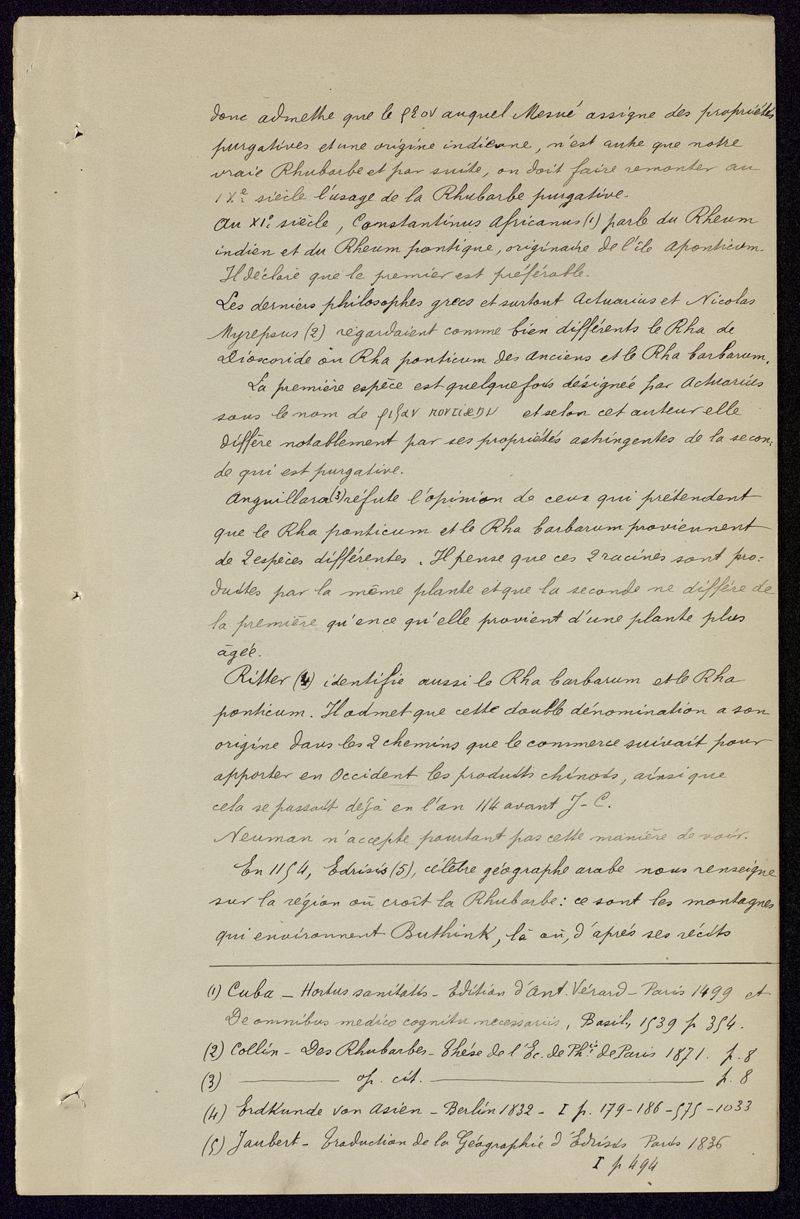 donc admettre que le ρεον auquel Mesué assigne des propriétés
purgatives et une origine indienne, n'est autre que notre
vraie Rhubarbe et par suite, on doit faire remonter au
IXe siècle l'usage de la Rhubarbe purgative.
Au XIe siècle, Constantinus Africanus (1) parle du Rheum
indien et du Rheum pontique, originaire de l'île Aponticum.
Il déclare que le premier est préférable.
Les derniers philosophes grecs et surtout Actuarius et Nicolas
Myrepsus (2) regardaient comme bien différents le Rha de
Dioscoride ou Rha ponticum des Anciens et le Rha barbarum.
La première espèce est quelquefois désignée par Actuarius
sous le nom de ριζαν ποντικην et selon cet auteur elle
diffère notablement par ses propriétés astringentes de la secon-
de qui est purgative.
Anguillara (3) réfute l'opinion de ceux qui prétendent
que le Rha ponticum et le Rha barbarum proviennent
de 2 espèces différentes. Il pense que ces 2 racines sont pro-
duites par la même plante et que la seconde ne diffère de
la première qu'en ce qu'elle provient d'une plante plus
âgée.
Ritter (4) identifie aussi le Rha barbarum et le Rha
ponticum. Il admet que cette double dénomination a son
origine dans les 2 chemins que le commerce suivait pour
apporter en Occident les produits chinois, ainsi que
cela se passait déjà en l'an 114 avant J-C.
Neuman n'accepte pourtant pas cette manière de voir.
En 1154, Edrisis (5), célèbre géographe arabe nous renseigne
sur la région où croît la Rhubarbe: ce sont les montagnes
qui environnent Buthink, là où, d'après ses récits
(1) Cuba - Hortus sanitatis - Edition d'Ant. Vérard - Paris 1499 et
De omnibus medico cognitu necessariis, Basil., 1539 p 354.
(2) Collin - Des Rhubarbes - Thèse de l'Ec. de Phcie de Paris 1871. p. 8
(3) ——— op. cit. ——— p. 8
(4) Erdkunde von Asien - Berlin 1832 - I p. 179-186-575-1033
(5) Jaubert - Traduction de la Géographie d'Edrisis Paris 1836
I p 494